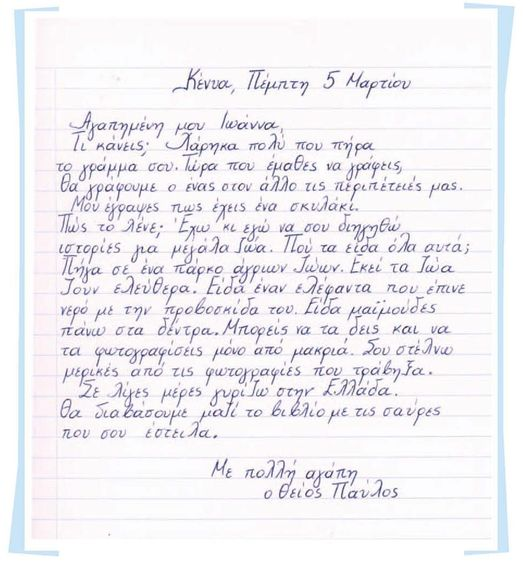 Κένυα, Πέμπτη 5 Μαρτίου
Αγαπημένη μου Ιωάννα,
Τι κάνεις; Χάρηκα πολύ που πήρα
το γράμμα σου. Τώρα που έμαθες να γράφεις,
θα γράφουμε ο ένας στον άλλο τις περιπέτειές μας.
Μου έγραψες πως έχεις ένα σκυλάκι.
Πώς το λένε; Έχω κι εγώ να σου διηγηθώ
ιστορίες για μεγάλα ζώα. Πού τα είδα όλα αυτά;
Πήγα σε ένα πάρκο άγριων ζώων. Εκεί τα ζώα
ζουν ελεύθερα. Είδα έναν ελέφαντα που έπινε
νερό με την προβοσκίδα του. Είδα μαϊμούδες
πάνω στα δέντρα. Μπορείς να τα δεις και να
τα φωτογραφίσεις μόνο από μακριά. Σου στέλνω
μερικές από τις φωτογραφίες που τράβηξα.
Σε λίγες μέρες γυρίζω στην Ελλάδα.
Θα διαβάσουμε μαζί το βιβλίο με τις σαύρες
που σου έστειλα.
Με πολλή αγάπη
ο θείος Παύλος